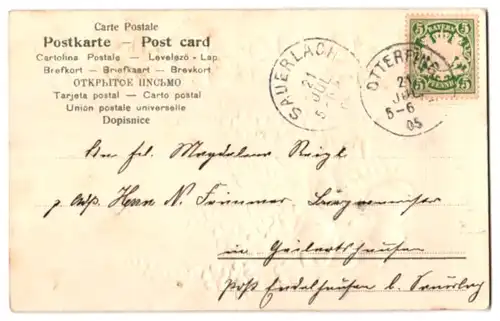 Carte Postale
Postkarte — Post card
Cartolina Postale — Levelező-Lap
Brefkort — Briefkaart — Brevkort
ОТКРЫТОЕ ПИСЬМО
Tarjeta postal — Carto postal
Union postale universelle
Dopisnice
SAUERLACH
21
JUL
5-6
OTTERFING
21
JUL
5-6
05
5 BAYERN 5
5 PFENNIG 5
An frl. Magdalena
p. Adr. Herr N. Trimmer, Bürgermeister
in
Post b. Sauerlach